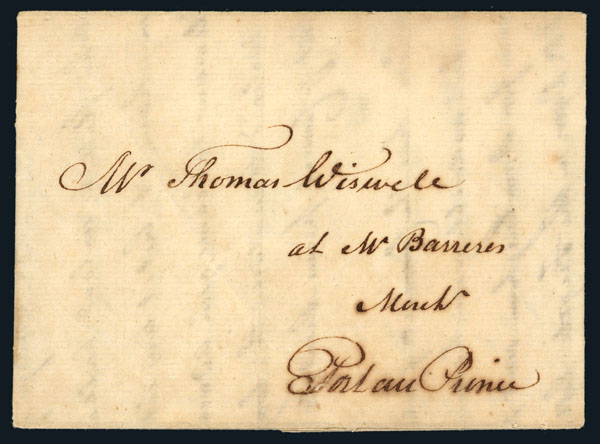 Mr Thomas Wiswell
at Mr Barreres
Merch^t
Port au Prince